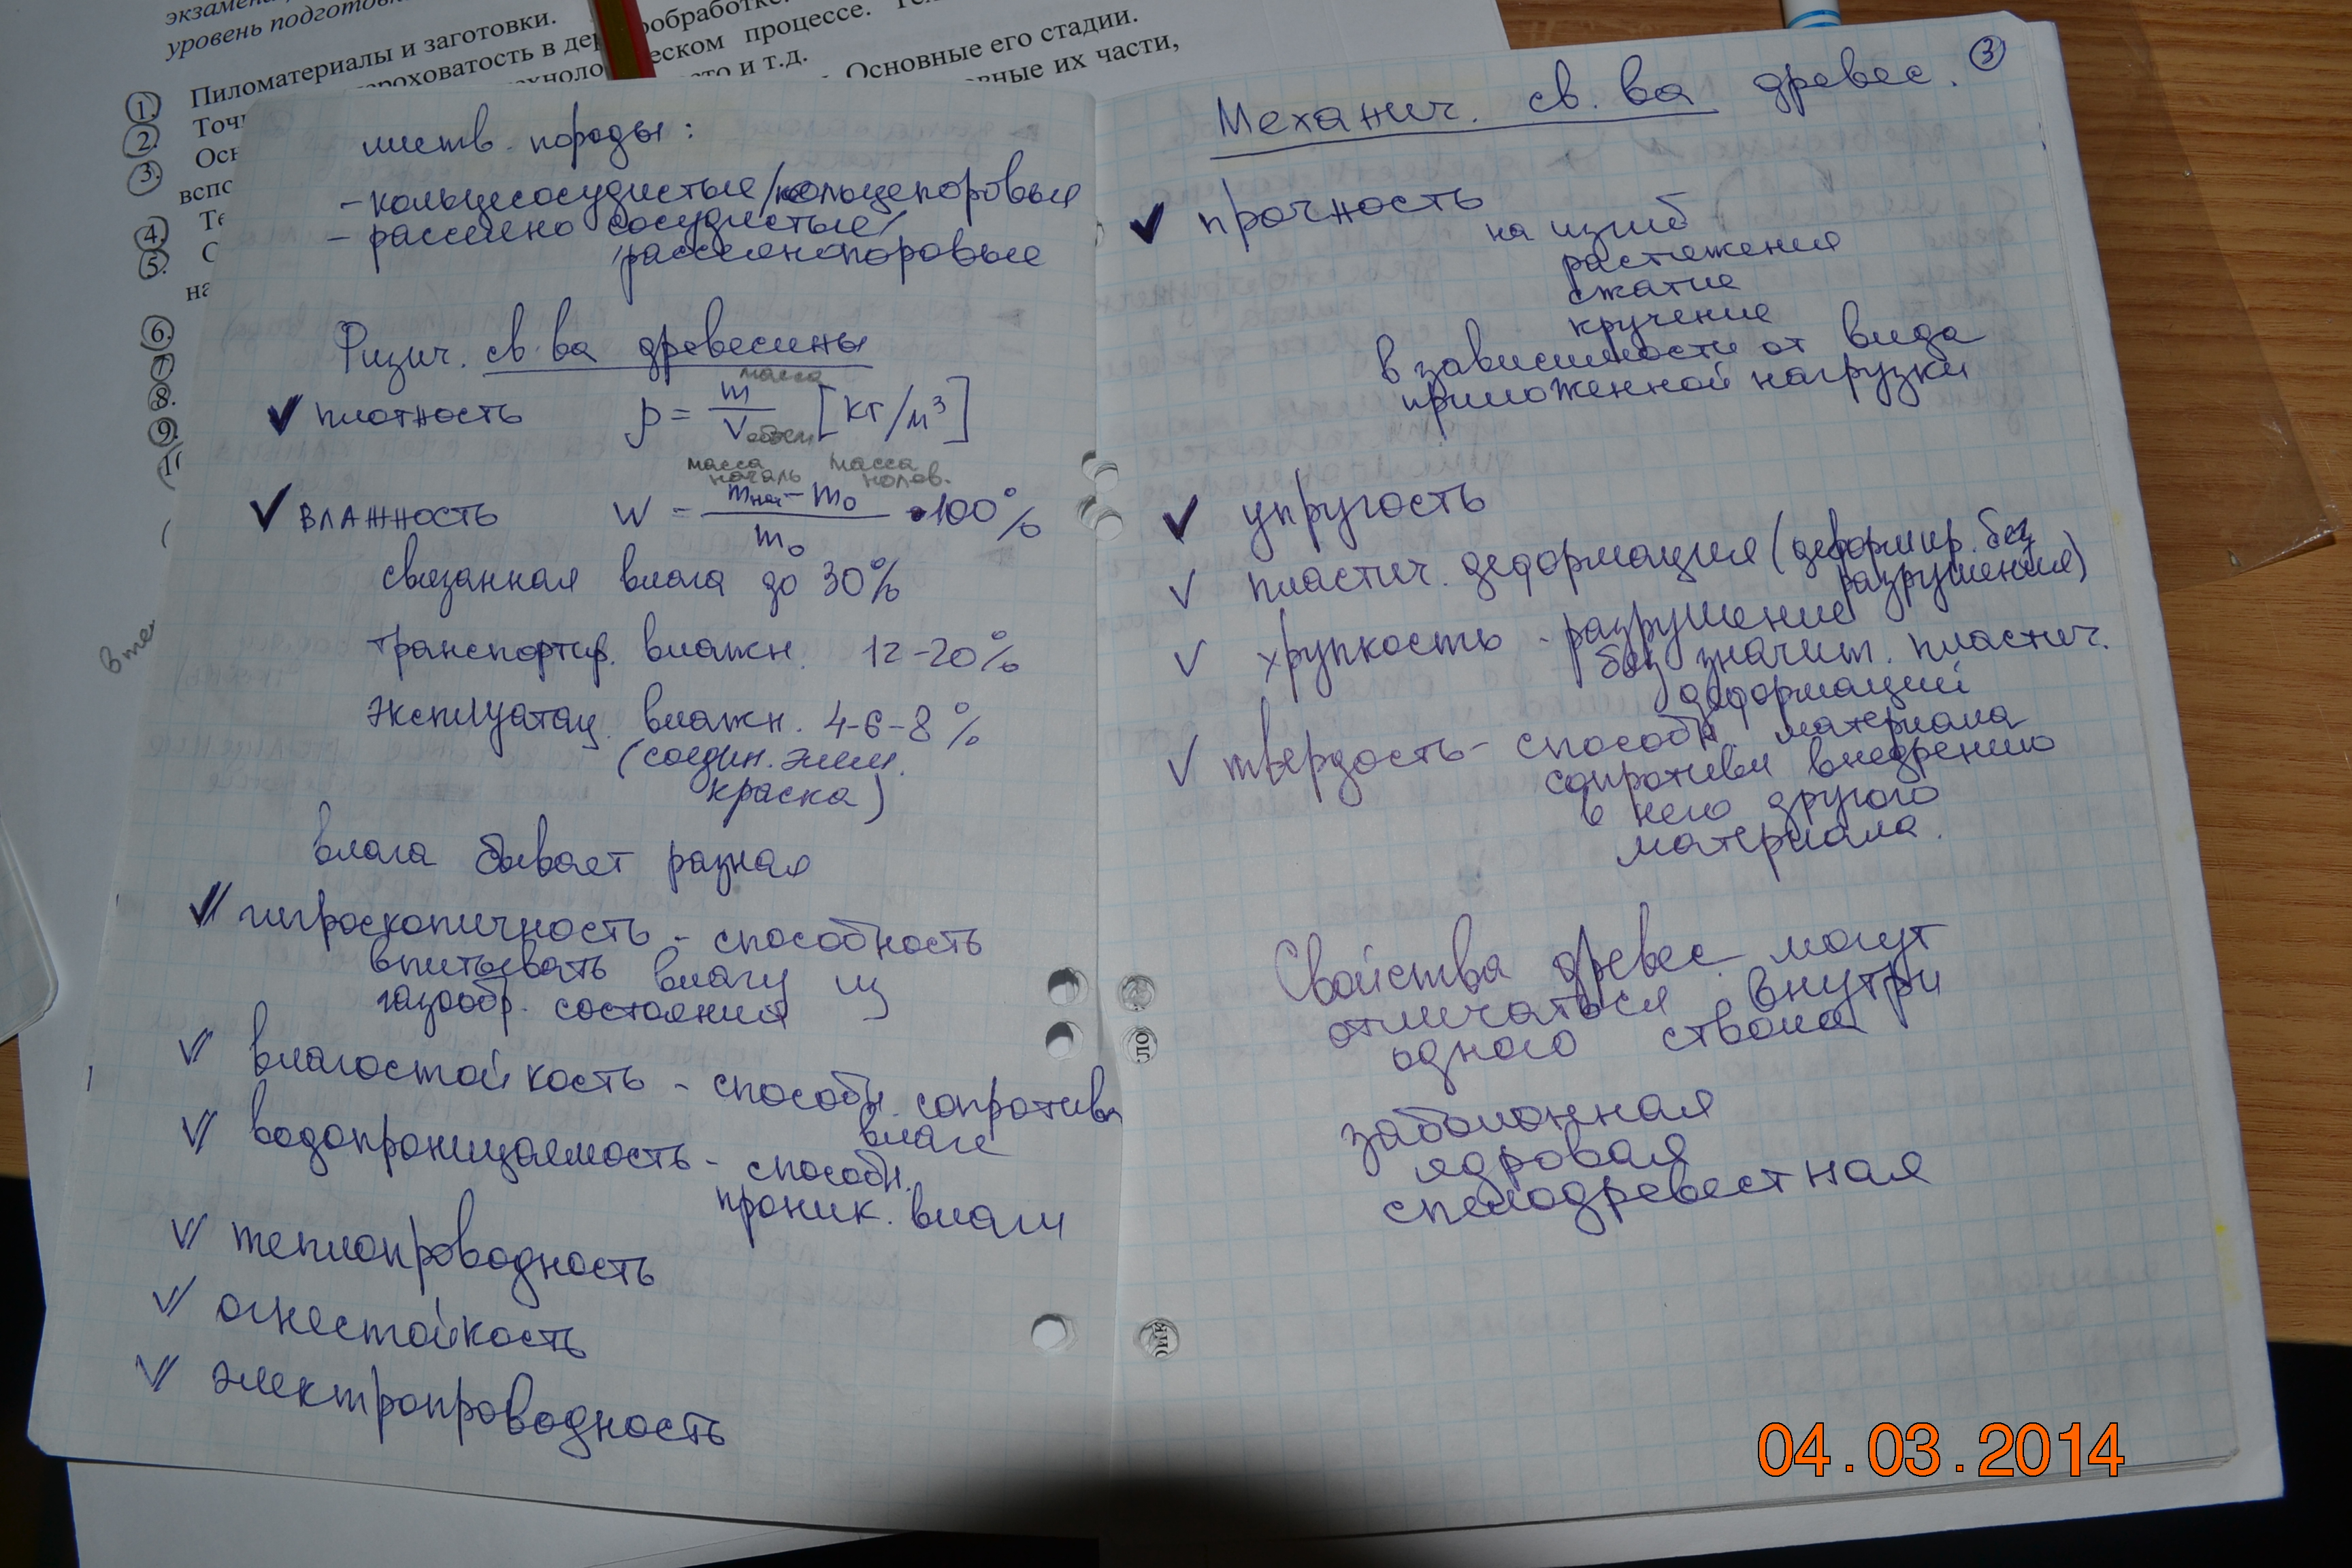 уровень подготов
Пиломатериалы и заготовки.
ообработке.
ческом процессе.
и т.д.
Основные его стадии.
вные их части,
1.
2.
3.
4.
5.
6.
7
8.
9.
листв. породы:
- кольцесосудистые/кольцепоровые
- рассеяно сосудистые/
рассеянопоровые
Физич. св.ва древесины
✓ плотность ρ = m масса / V объем [кг/м³]
масса начальн масса
✓ влажность W = mнач - m0 / m0 • 100%
связанная влага до 30%
транспортир. влажн. 12-20%
эксплуатац. влажн. 4-6-8%
(соедин. элем.
краска)
влага бывает разная
✓ гигроскопичность - способность
впитывать влагу из
газообр. состояния
✓ влагостойкость - способн. сопротивл
влаге
✓ водопроницаемость - способн.
проник. влаги
✓ теплопроводность
✓ огнестойкость
✓ электропроводность
3
Механич. св. ва древес.
✓ прочность
на изгиб
растяжения
сжатие
кручение
в зависимости от вида
приложенной нагрузки
✓ упругость
✓ пластич. деформация (деформир. без
разрушения)
✓ хрупкость - разрушение
без значит. пластич.
деформаций
✓ твердость - способн. материала
сопротивл внедрению
в него другого
материала.
Свойства древес. могут
отличаться внутри
одного ствола
заболонная
ядровая
спелодревестная
04.03.2014